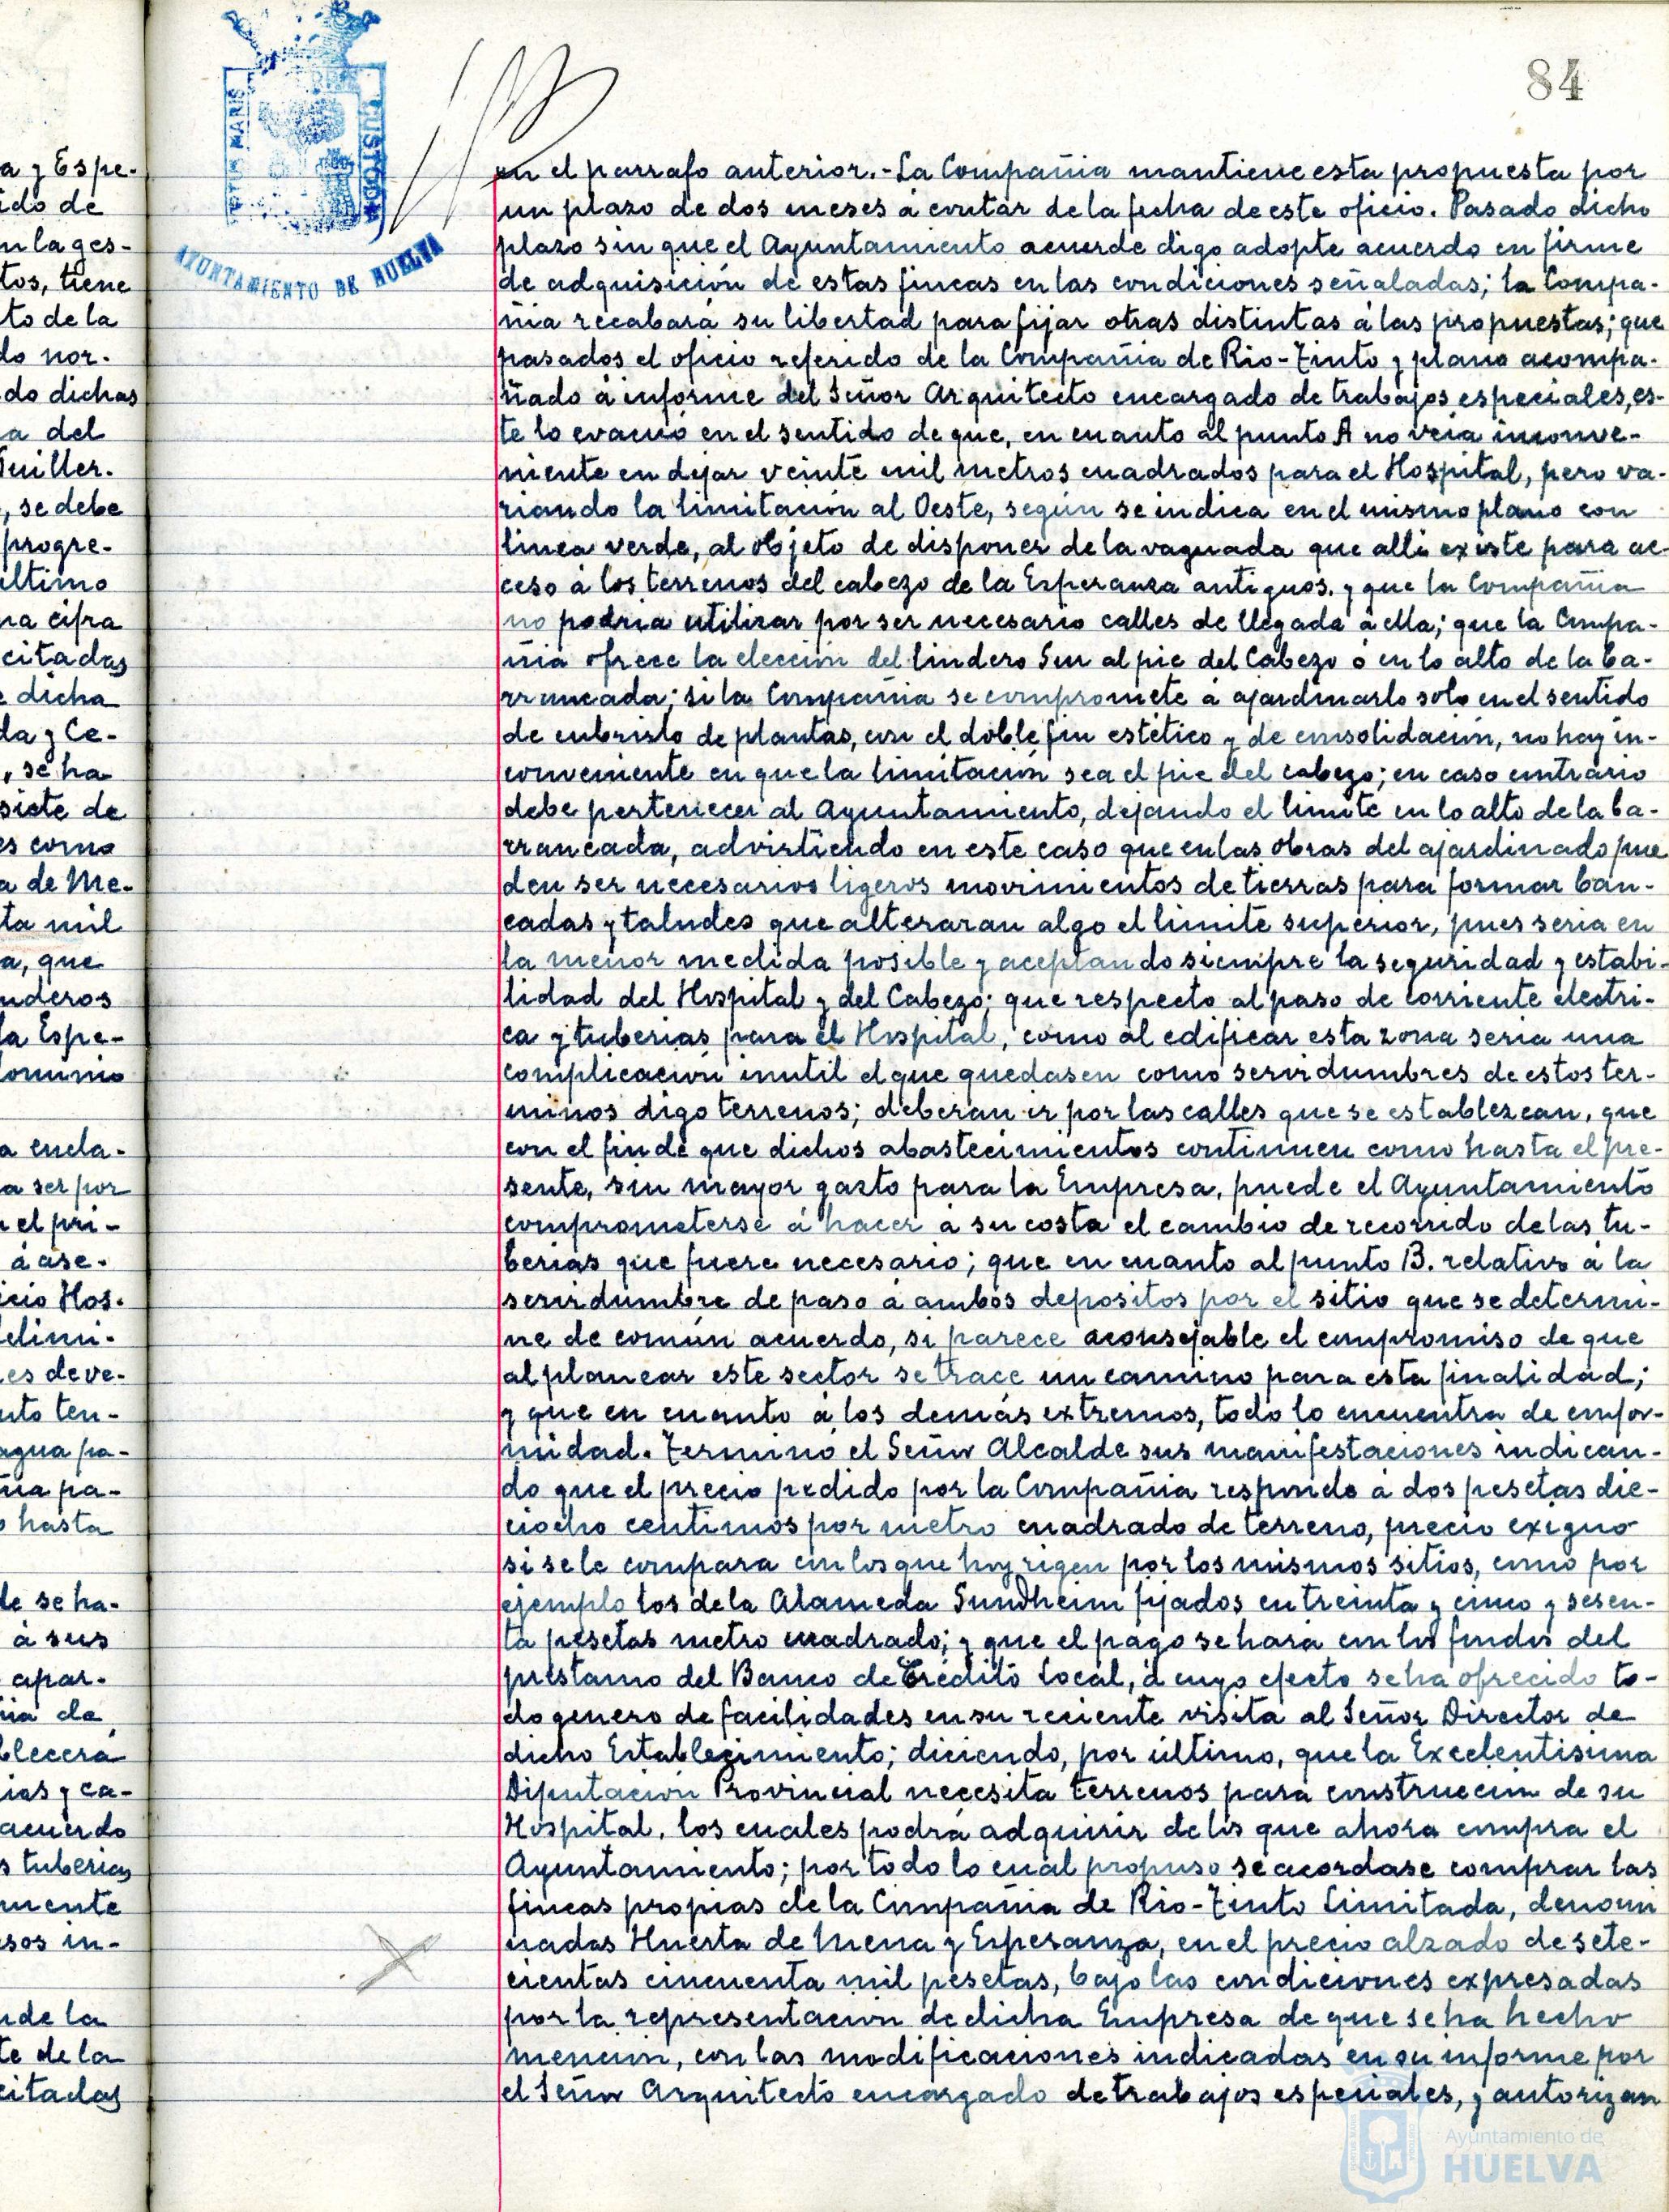 84
PORTUS MARIS
CUSTODIA
AYUNTAMIENTO DE HUELVA
en el parrafo anterior.- La Compañia mantiene esta propuesta por
un plazo de dos meses á contar de la fecha de este oficio. Pasado dicho
plazo sin que el Ayuntamiento acuerde digo adopte acuerdo en firme
de adquisición de estas fincas en las condiciones señaladas; la Compa-
ñia recabará su libertad para fijar otras distintas á las propuestas; que
pasados el oficio referido de la Compañia de Rio-Tinto y plano acompa-
ñado á informe del Señor Arquitecto encargado de trabajos especiales, es-
te lo evacuó en el sentido de que, en cuanto al punto A no veia inconve-
niente en dejar veinte mil metros cuadrados para el Hospital, pero va-
riando la limitación al Oeste, según se indica en el mismo plano con
linea verde, al objeto de disponer de la vaguada que alli existe para ac-
ceso á los terrenos del cabezo de la Esperanza antiguos, y que la Compañia
no podria utilizar por ser necesario calles de llegada á ella; que la Compa-
ñia ofrece la elección del lindero Sur al pie del Cabezo ó en lo alto de la ba-
rrancada; si la Compañia se compromete á ajardinarlo solo en el sentido
de cubrirlo de plantas, con el doble fin estético y de consolidación, no hay in-
conveniente en que la limitación sea el pie del cabezo; en caso contrario
debe pertenecer al Ayuntamiento, dejando el limite en lo alto de la ba-
rrancada, advirtiendo en este caso que en las obras del ajardinado pue
den ser necesarios ligeros movimientos de tierras para formar ban-
cadas y taludes que alteraran algo el limite superior, pues seria en
la menor medida posible y aceptando siempre la seguridad y estabi-
lidad del Hospital y del Cabezo; que respecto al paso de corriente electri-
ca y tuberias para el Hospital, como al edificar esta zona seria una
complicación inutil el que quedasen como servidumbres de estos ter-
minos digo terrenos; deberán ir por las calles que se establezcan, que
con el fin de que dichos abastecimientos continuen como hasta el pre-
sente, sin mayor gasto para la Empresa, puede el Ayuntamiento
comprometerse á hacer á su costa el cambio de recorrido de las tu-
berias que fuere necesario; que en cuanto al punto B. relativo á la
servidumbre de paso á ambos depositos por el sitio que se determi-
ne de común acuerdo, si parece aconsejable el compromiso de que
al planear este sector se trace un camino para esta finalidad;
y que en cuanto á los demás extremos, todo lo encuentra de confor-
midad. Terminó el Señor Alcalde sus manifestaciones indican-
do que el precio pedido por la Compañia responde á dos pesetas die-
ciocho centimos por metro cuadrado de terreno, precio exiguo
si se le compara con los que hoy rigen por los mismos sitios, como por
ejemplo los de la Alameda Sundheim fijados en treinta y cinco y sesen-
ta pesetas metro cuadrado; y que el pago se hará con los fondos del
prestamo del Banco de Crédito Local, á cuyo efecto se ha ofrecido to-
do genero de facilidades en su reciente visita al Señor Director de
dicho Establecimiento; diciendo, por último, que la Excelentisima
Diputación Provincial necesita terrenos para construcción de su
Hospital, los cuales podrá adquirir de los que ahora compra el
Ayuntamiento; por todo lo cual propuso se acordase comprar las
fincas propias de la Compañia de Rio-Tinto Limitada, denomi
nadas Huerta de Mena y Esperanza, en el precio alzado de sete-
cientas cincuenta mil pesetas, bajo las condiciones expresadas
por la representación de dicha Empresa de que se ha hecho
mención, con las modificaciones indicadas en su informe por
el Señor Arquitecto encargado de trabajos especiales, y autorizan
Ayuntamiento de
HUELVA